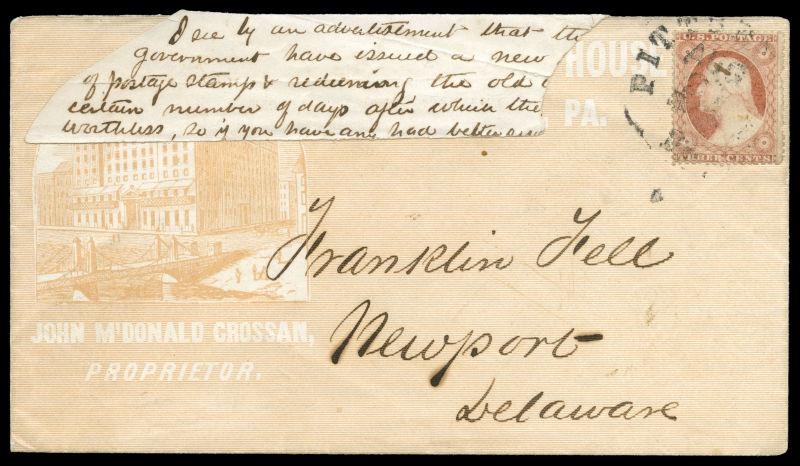 I see by an advertisement that the
government have issued a new
of postage stamps & redeeming the old
certain number of days after which the
worthless, so if you have any had better
HOUSE
PA.
PITT
U.S. POSTAGE
THREE CENTS
Franklin Fell
Newport
Delaware
JOHN McDONALD CROSSAN,
PROPRIETOR.